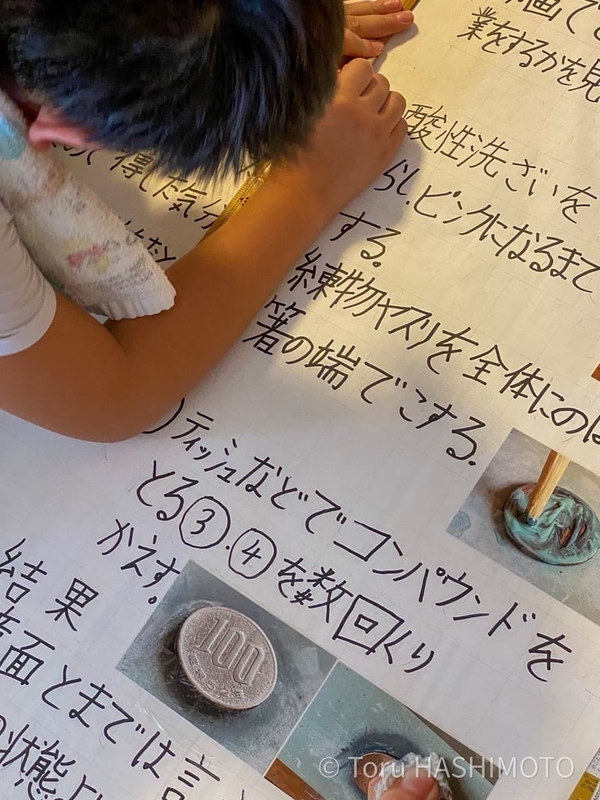 業をするかを見
酸性洗ざいを
らし、ピンクになるまで
する。
練物ヤスリを全体にのば
箸の端でこする。
得した気分
ティッシュなどでコンパウンドを
とる③.④を数回くり
かえす。
結果
面とまでは言
状態
100
© Toru HASHIMOTO